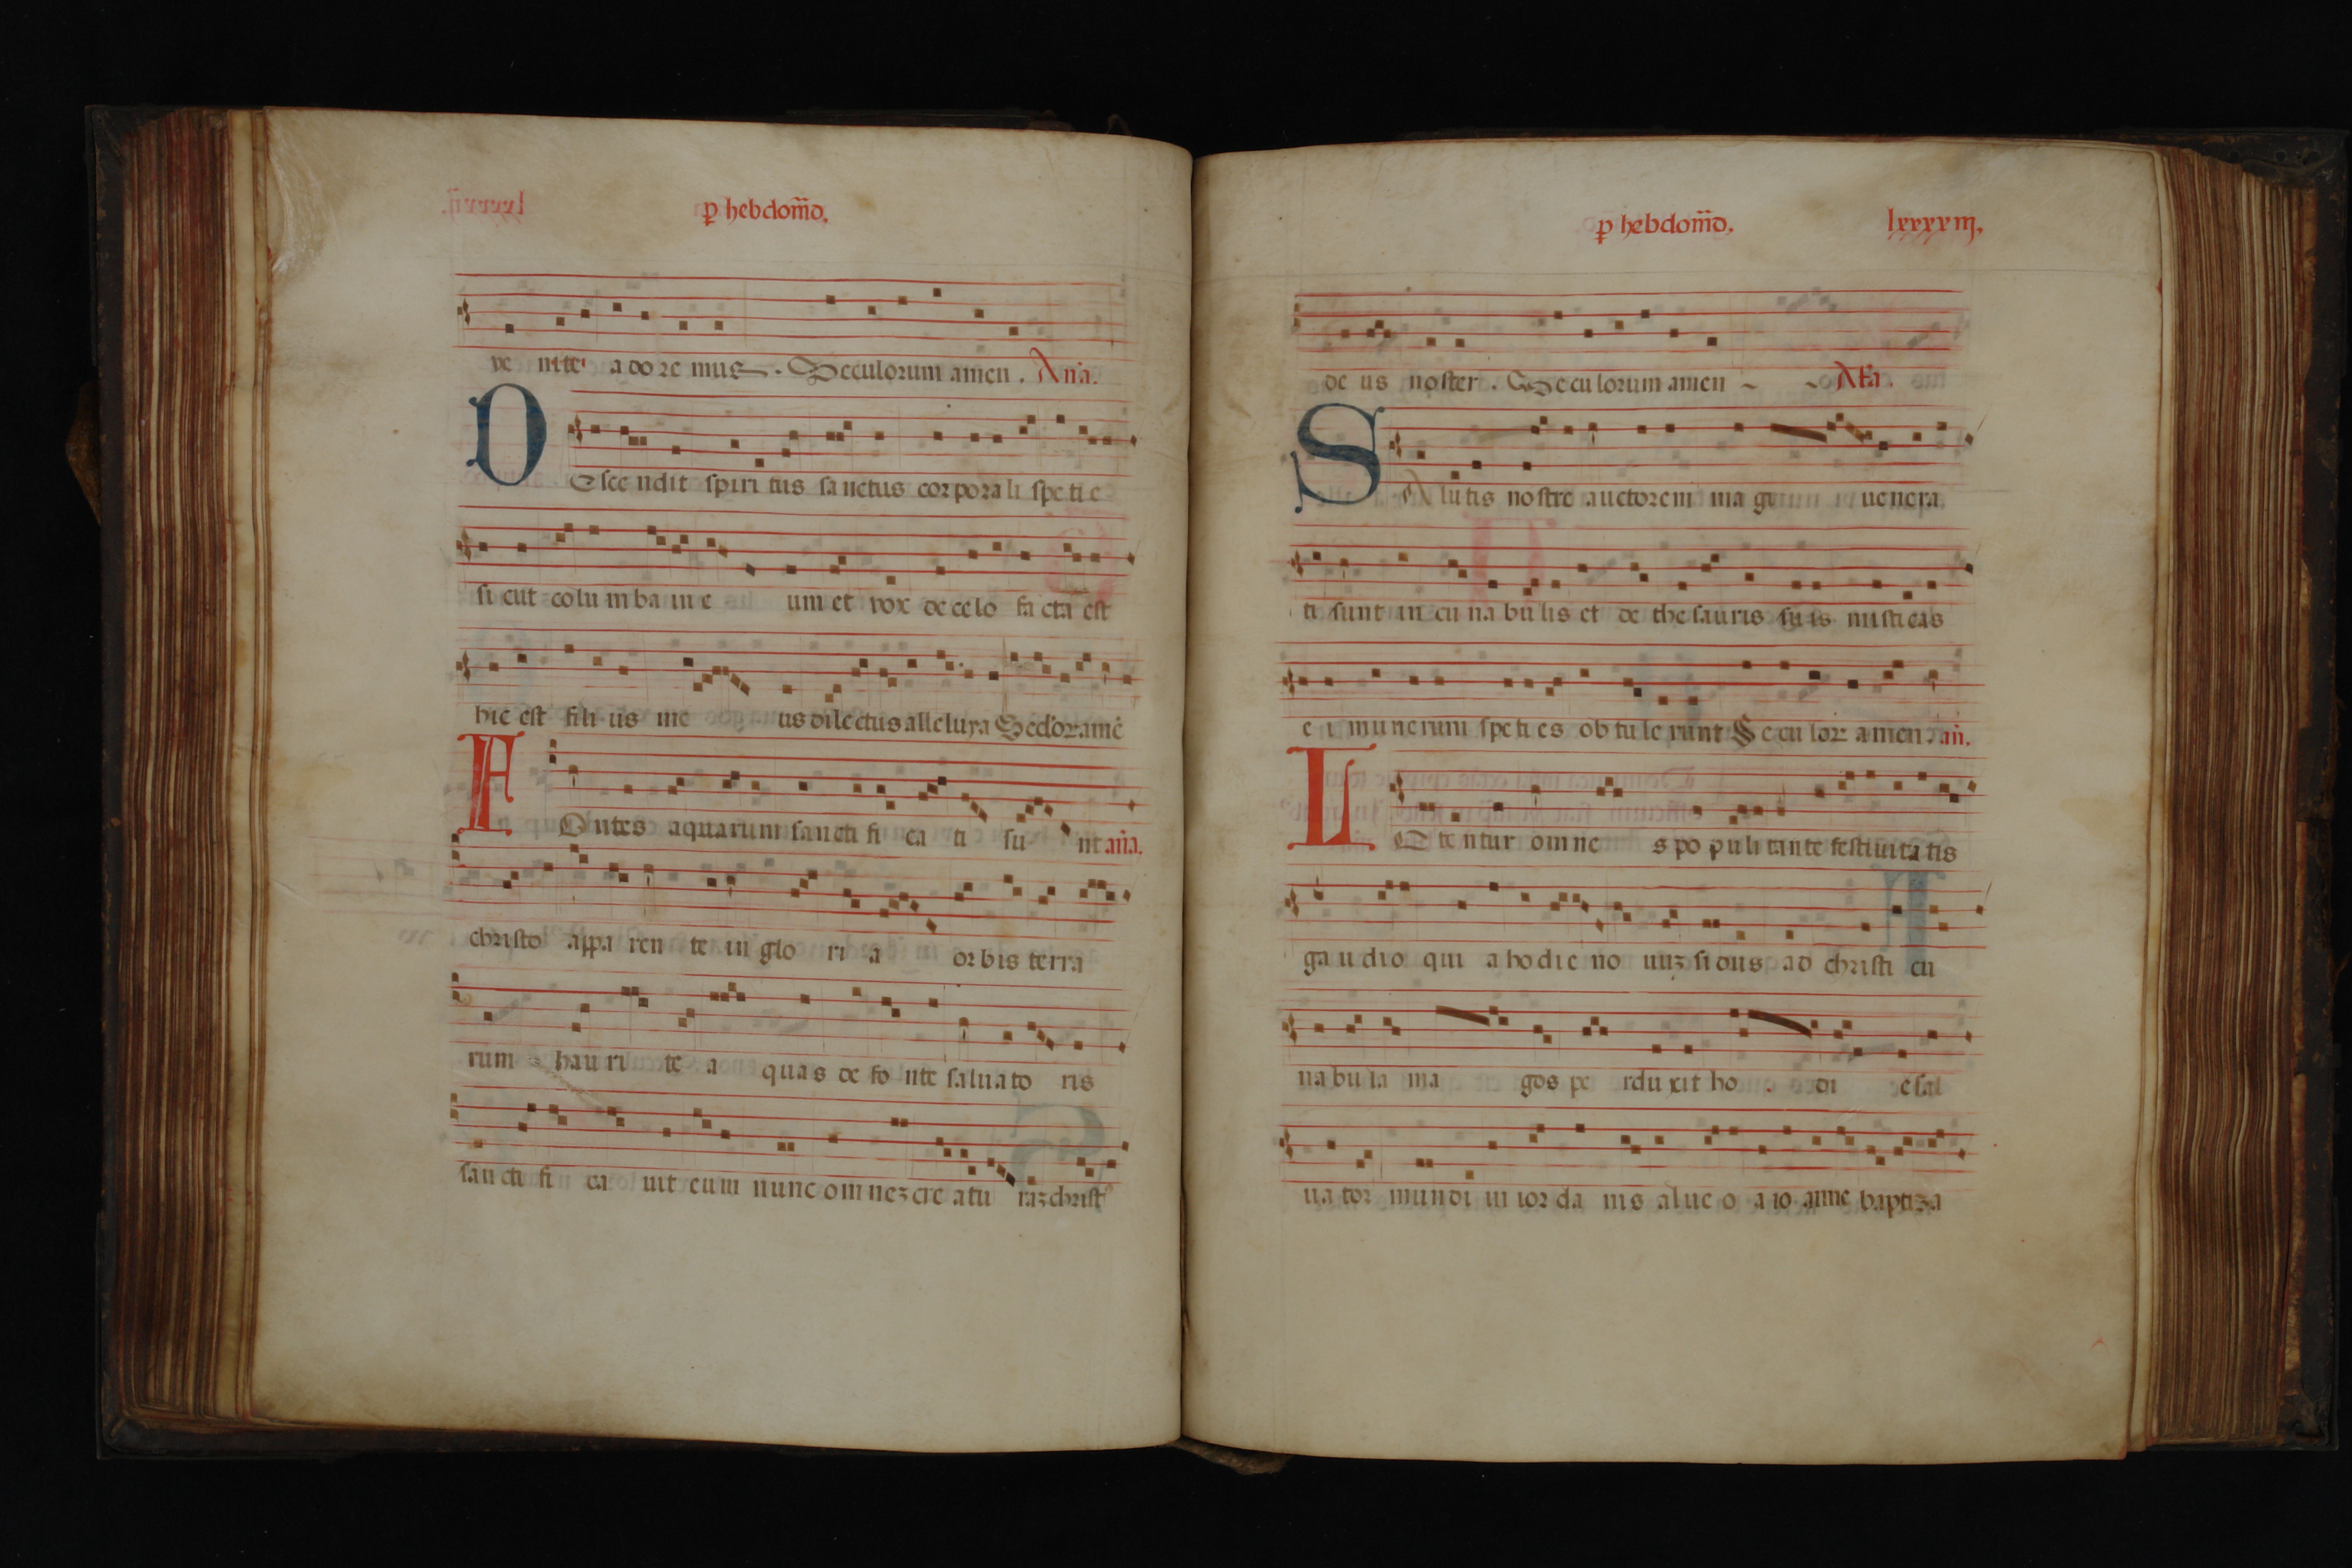 ꝑ hebdom̄d.
ve nite adoremus. Seculorum amen. Aña.
D Escendit spiritus sanctus corporali spetie
sicut columba in eum et vox de celo facta est
hic est filius meus dilectus alleluya Seclor amē
F Ontes aquarum sanctificati sunt aña.
christo apparente in gloria orbis terra
rum haurite aquas de fonte saluatoris
sanctificauit eum nunc omnez creaturaz christ
ꝑ hebdom̄d. lxxxxiij.
deus noster. Seculorum amen Añ.
S Alutis nostre auctorem magi uenera
ti sunt in cunabulis et de thesauris suis misticas
ei munerum speties obtulerunt Seculor amen. añ.
L Etentur omnes populi tante festiuitatis
gaudio quia hodie nouuz sidus ad christi cu
nabula magos perduxit hodie sal
uator mundi in iordanis alueo a ioanne baptiza